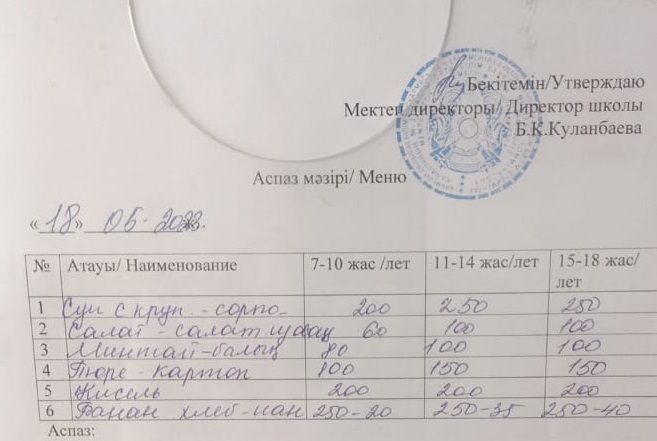 Бекітемін/Утверждаю
Мектеп директоры/ Директор школы
Б.К.Куланбаева
Аспаз мәзірі/ Меню
«18» 05. 2023.
№ Атауы/ Наименование 7-10 жас /лет 11-14 жас/лет 15-18 жас/
лет
1 Суп с круп. - сорпо 200 250 250
2 Салат - салат 60 100 100
3 Минтай-балық 80 100 100
4 Пюре - картоп 100 150 150
5 Кисель 200 200 200
6 Банан хлеб-нан 250-20 250-35 250-40
Аспаз: